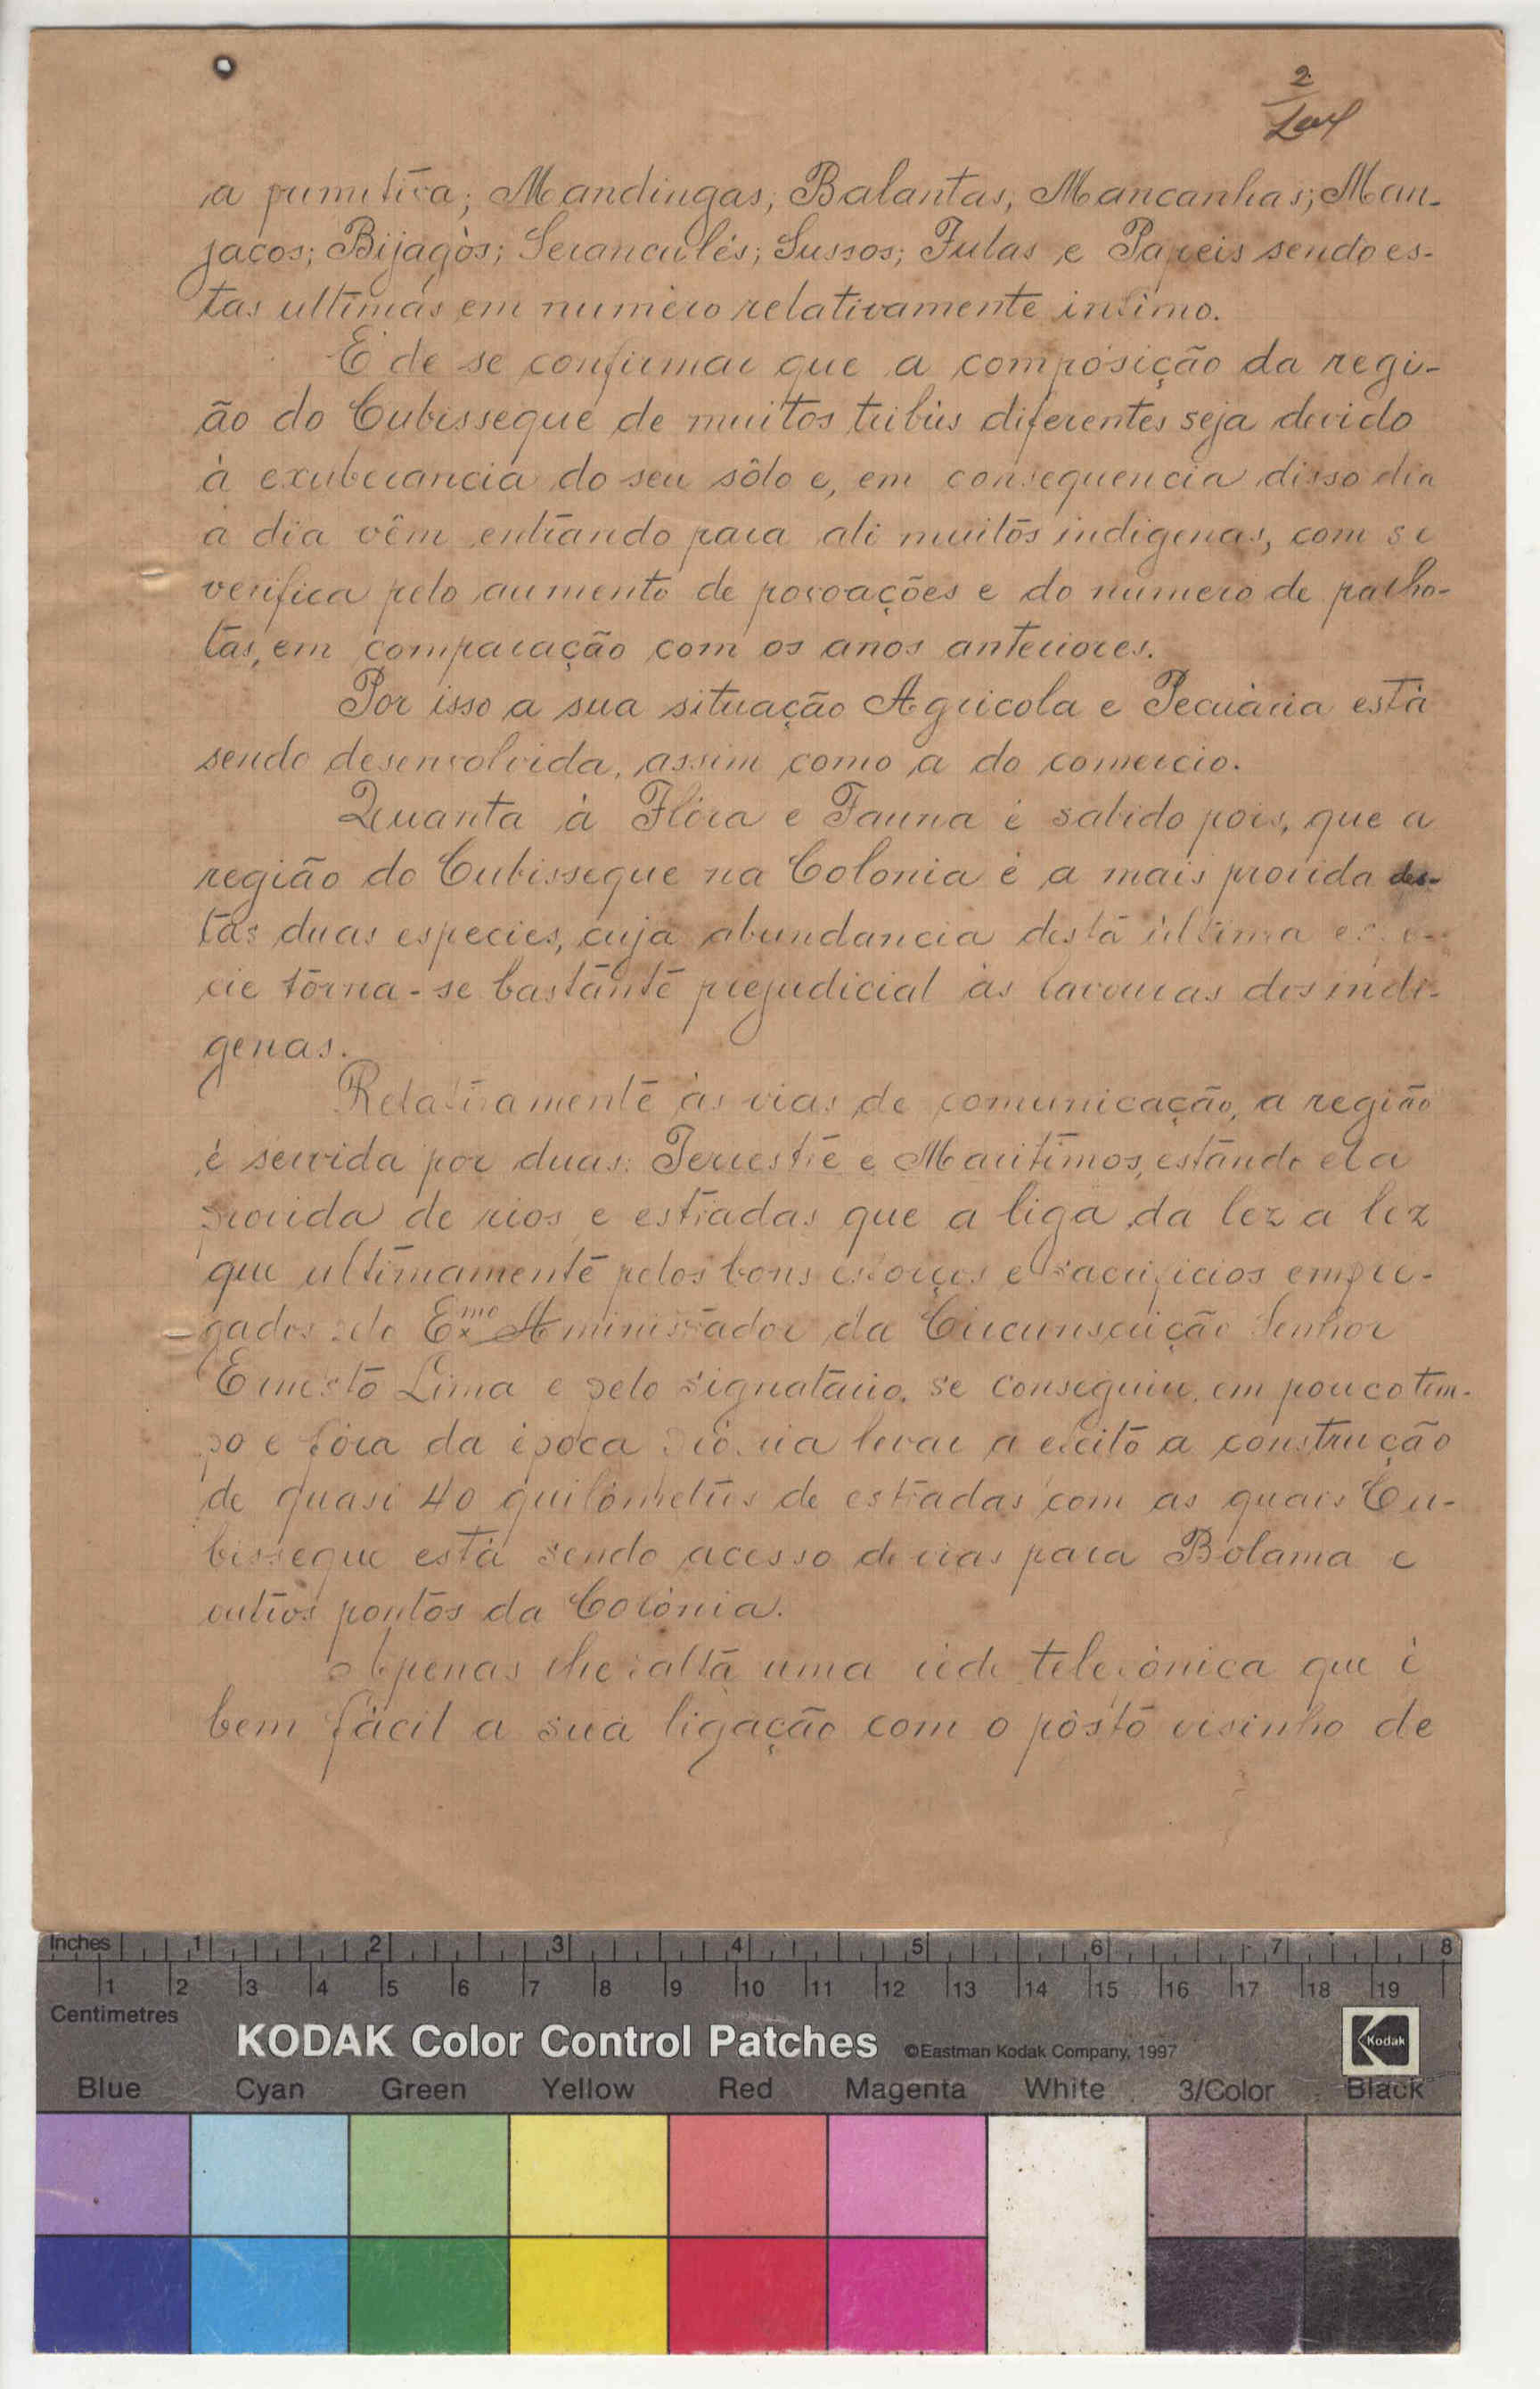 2
a primitiva; Mandingas; Balantas; Mancanhas; Man-
jacos; Bijagòs; Seranculés; Sussos; Fulas e Papeis sendo es-
tas ultimas em numero relativamente infimo.
E de se confirmar que a composição da regi-
ão do Cubisseque de muitos tribus diferentes seja devido
à exuberancia do seu sôlo e, em consequencia disso dia
a dia vêm entrando para ali muitos indigenas, com se
verifica pelo aumento de povoações e do numero de palho-
tas, em comparação com os anos anteriores.
Por isso a sua situação Agricola e Pecuària està
sendo desenvolvida, assim como a do comercio.
Quanta à Flóra e Fauna é sabido pois, que a
região do Cubisseque na Colonia é a mais provida des-
tas duas especies, cuja abundancia desta ùltima espe-
cie tórna-se bastante prejudicial às lavouras dos indi-
genas.
Relativamente às vias de comunicação, a região
é servida por duas: Terrestre e Maritimos, estando ela
provida de rios e estradas que a liga da lez a lez
que ultimamente pelos bons esforços e sacrificios empre-
gados pelo Exmo Aministrador da Circunscrição Senhor
Ernesto Lima e pelo signatario, se conseguiu, em pouco tem-
po e fóra da época própria levar a efeito a construção
de quasi 40 quilómetros de estradas com as quais Cu-
bisseque està sendo acesso de vias para Bolama e
outros pontos da Colónia.
Apenas lhe falta uma rede telefónica que é
bem fàcil a sua ligação com o pôsto visinho de
Inches 1 2 3 4 5 6 7 8
1 2 3 4 5 6 7 8 9 10 11 12 13 14 15 16 17 18 19
Centimetres
KODAK Color Control Patches ©Eastman Kodak Company, 1997 Kodak
Blue Cyan Green Yellow Red Magenta White 3/Color Black